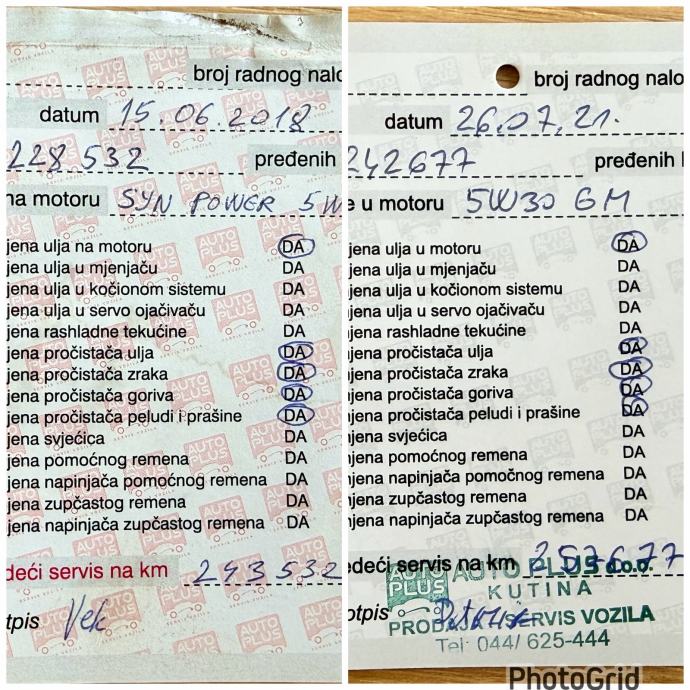 broj radnog nalo
datum 15.06.2018
228 532 pređenih
na motoru SYN POWER 5W
jena ulja na motoru DA
jena ulja u mjenjaču DA
jena ulja u kočionom sistemu DA
jena ulja u servo ojačivaču DA
jena rashladne tekućine DA
jena pročistača ulja DA
jena pročistača zraka DA
jena pročistača goriva DA
jena pročistača peludi i prašine DA
jena svjećica DA
jena pomoćnog remena DA
jena napinjača pomoćnog remena DA
jena zupčastog remena DA
jena napinjača zupčastog remena DA
deći servis na km 243532
tpis Vek
broj radnog nalo
datum 26.07.21.
242677 pređenih k
e u motoru 5W30 GM
jena ulja u motoru DA
jena ulja u mjenjaču DA
jena ulja u kočionom sistemu DA
jena ulja u servo ojačivaču DA
jena rashladne tekućine DA
jena pročistača ulja DA
jena pročistača zraka DA
jena pročistača goriva DA
jena pročistača peludi i prašine DA
jena svjećica DA
jena pomoćnog remena DA
jena napinjača pomočnog remena DA
jena zupčastog remena DA
jena napinjača zupčastog remena DA
edeći servis na km 257677
AUTO PLUS AUTO PLUS d.o.o.
KUTINA
otpis
PRODAJA I SERVIS VOZILA
Tel: 044/ 625-444
PhotoGrid